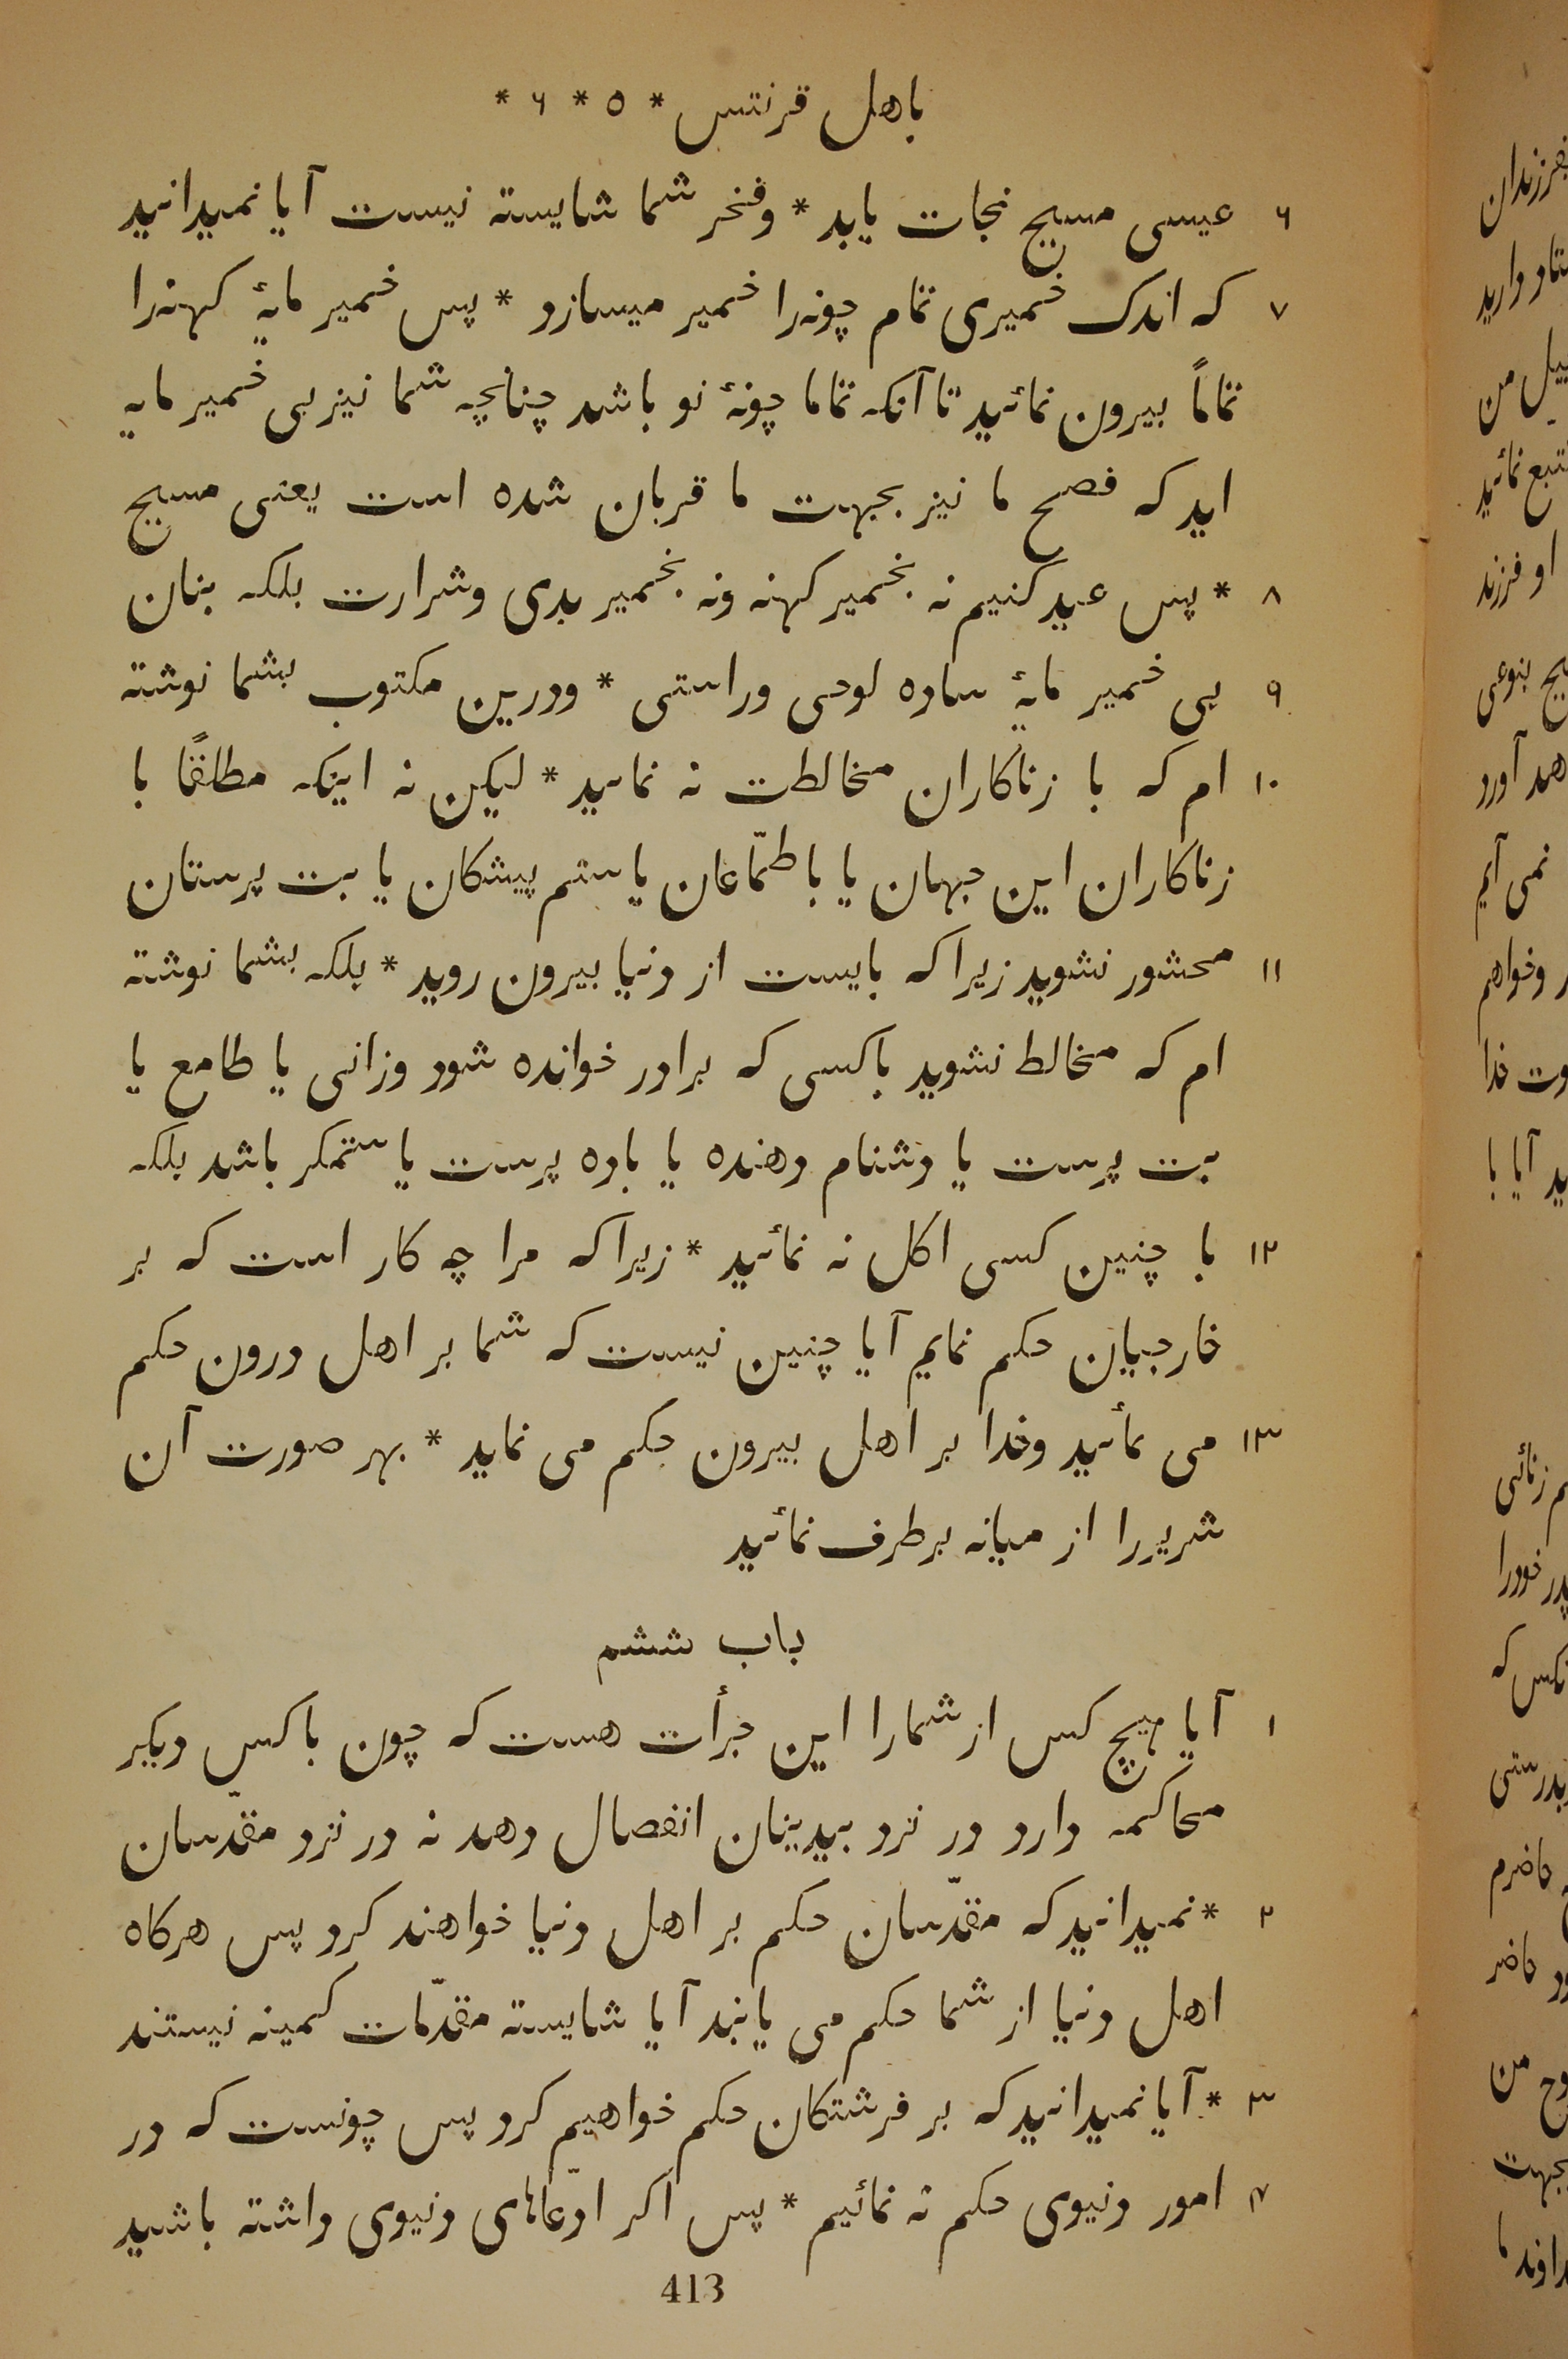 باهل قرنتس * ٥ * ٦ *
٦ عیسی مسیح نجات یابد * وفخر شما شایسته نیست آیا نمیدانید
٧ که اندک خمیری تمام چونه‌را خمیر میسازد * پس خمیر مایهٔ کهنه‌را
تماماً بیرون نمائید تا آنکه تماما چونهٔ نو باشد چنانچه شما نیز بی خمیر مایه
اید که فصح ما نیز بجهت ما قربان شده است یعنی مسیح
٨ * پس عید کنیم نه بخمیر کهنه ونه بخمیر بدی وشرارت بلکه بنان
٩ بی خمیر مایهٔ ساده لوحی وراستی * ودرین مکتوب بشما نوشته
١٠ ام که با زناکاران مخالطت نه نمائید * لیکن نه اینکه مطلقًا با
زناکاران این جهان یا با طمّاعان یا ستم پیشکان یا بت پرستان
١١ محشور نشوید زیرا که بایست از دنیا بیرون روید * بلکه بشما نوشته
ام که مخالط نشوید با کسی که برادر خوانده شود وزانی یا طامع یا
بت پرست یا دشنام دهنده یا باده پرست یا ستمکر باشد بلکه
١٢ با چنین کسی اکل نه نمائید * زیرا که مرا چه کار است که بر
خارجیان حکم نمایم آیا چنین نیست که شما بر اهل درون حکم
١٣ می نمائید وخدا بر اهل بیرون حکم می نماید * بهر صورت آن
شریررا از میانه برطرف نمائید
باب ششم
١ آیا هیچ کس از شمارا این جرأت هست که چون با کس دیکر
محاکمه دارد در نزد بیدینان انفصال دهد نه در نزد مقدّسان
٢ * نمیدانید که مقدّسان حکم بر اهل دنیا خواهند کرد پس هرکاه
اهل دنیا از شما حکم می یابند آیا شایسته مقدّمات کمینه نیستند
٣ * آیا نمیدانید که بر فرشتکان حکم خواهیم کرد پس چونست که در
۴ امور دنیوی حکم نه نمائیم * پس اکر ادّعاهای دنیوی داشته باشید
413